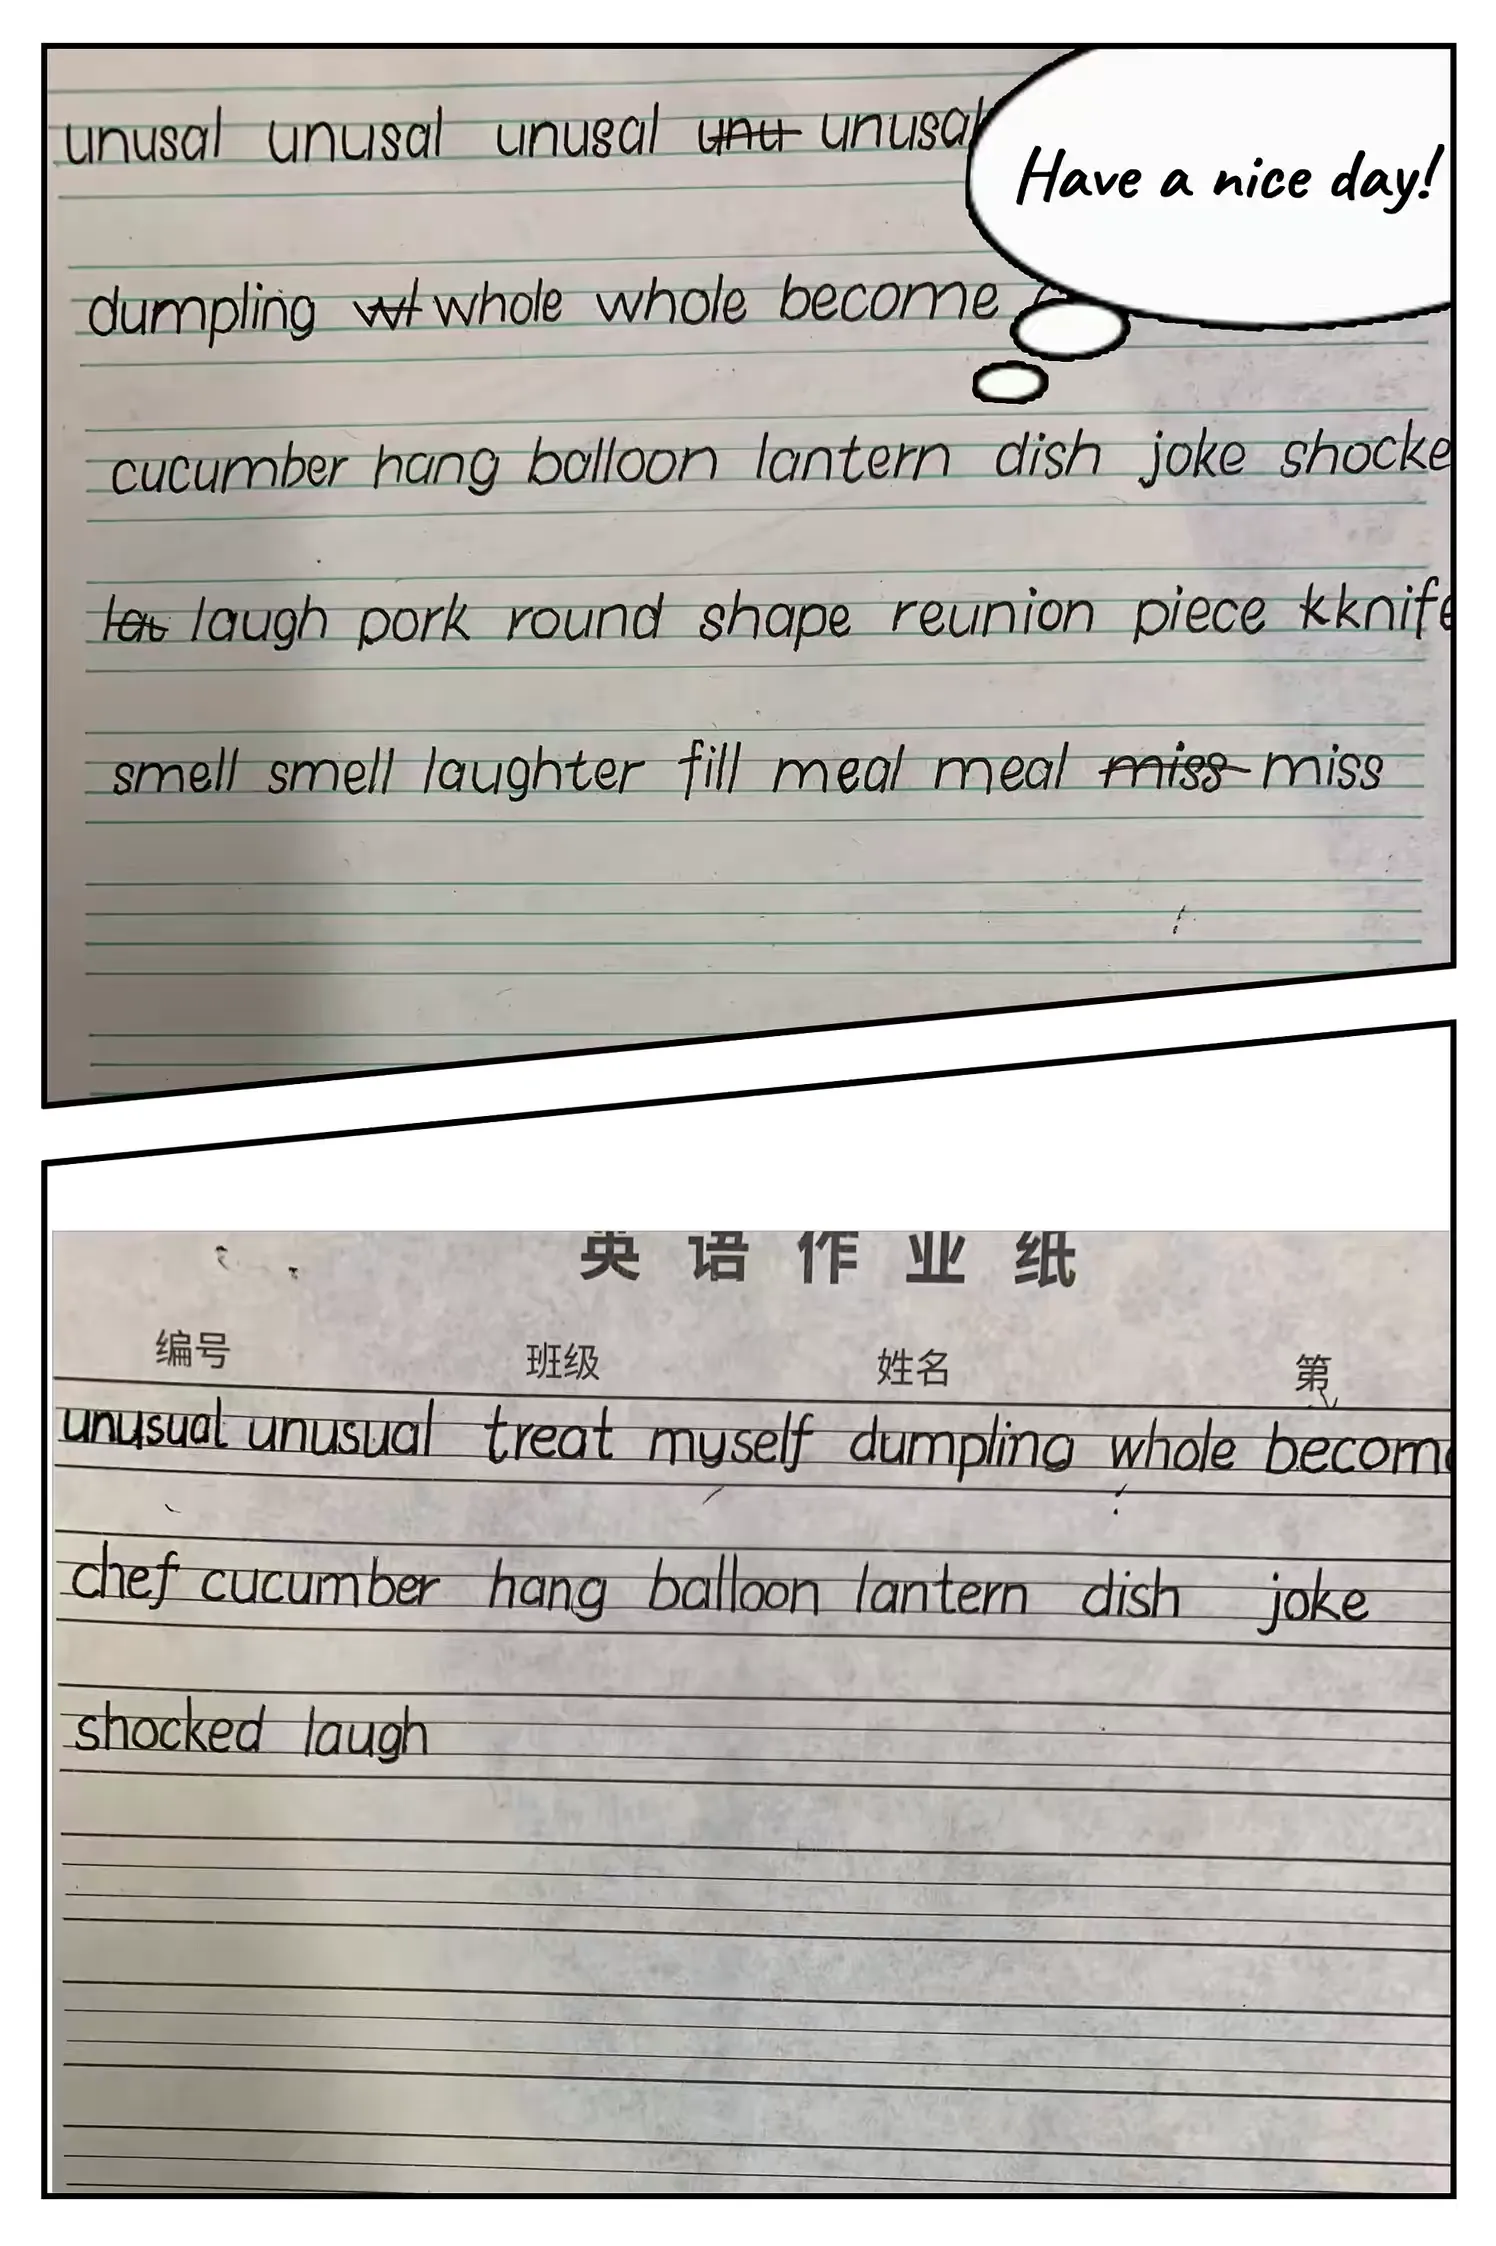 unusal unusal unusal unu unusal
Have a nice day!
dumpling wh whole whole become
cucumber hang balloon lantern dish joke shocke
lau laugh pork round shape reunion piece kknife
smell smell laughter fill meal meal miss miss
英语作业纸
编号 班级 姓名 第
unusual unusual treat myself dumpling whole become
chef cucumber hang balloon lantern dish joke
shocked laugh